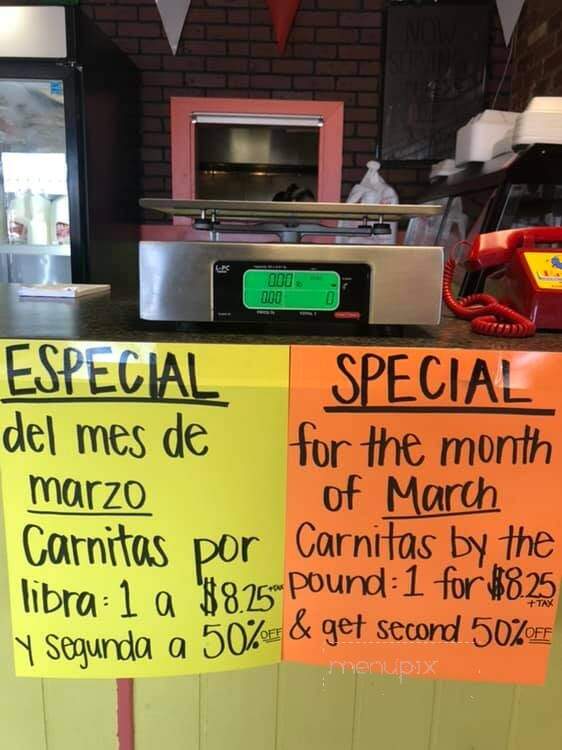 NOW
L-PC
0.00
0.00 0
ESPECIAL
del mes de
marzo
Carnitas por
libra: 1 a $8.25 +TAX
y segunda a 50% OFF
SPECIAL
for the month
of March
Carnitas by the
pound: 1 for $8.25
+ TAX
& get second 50% OFF
menupix